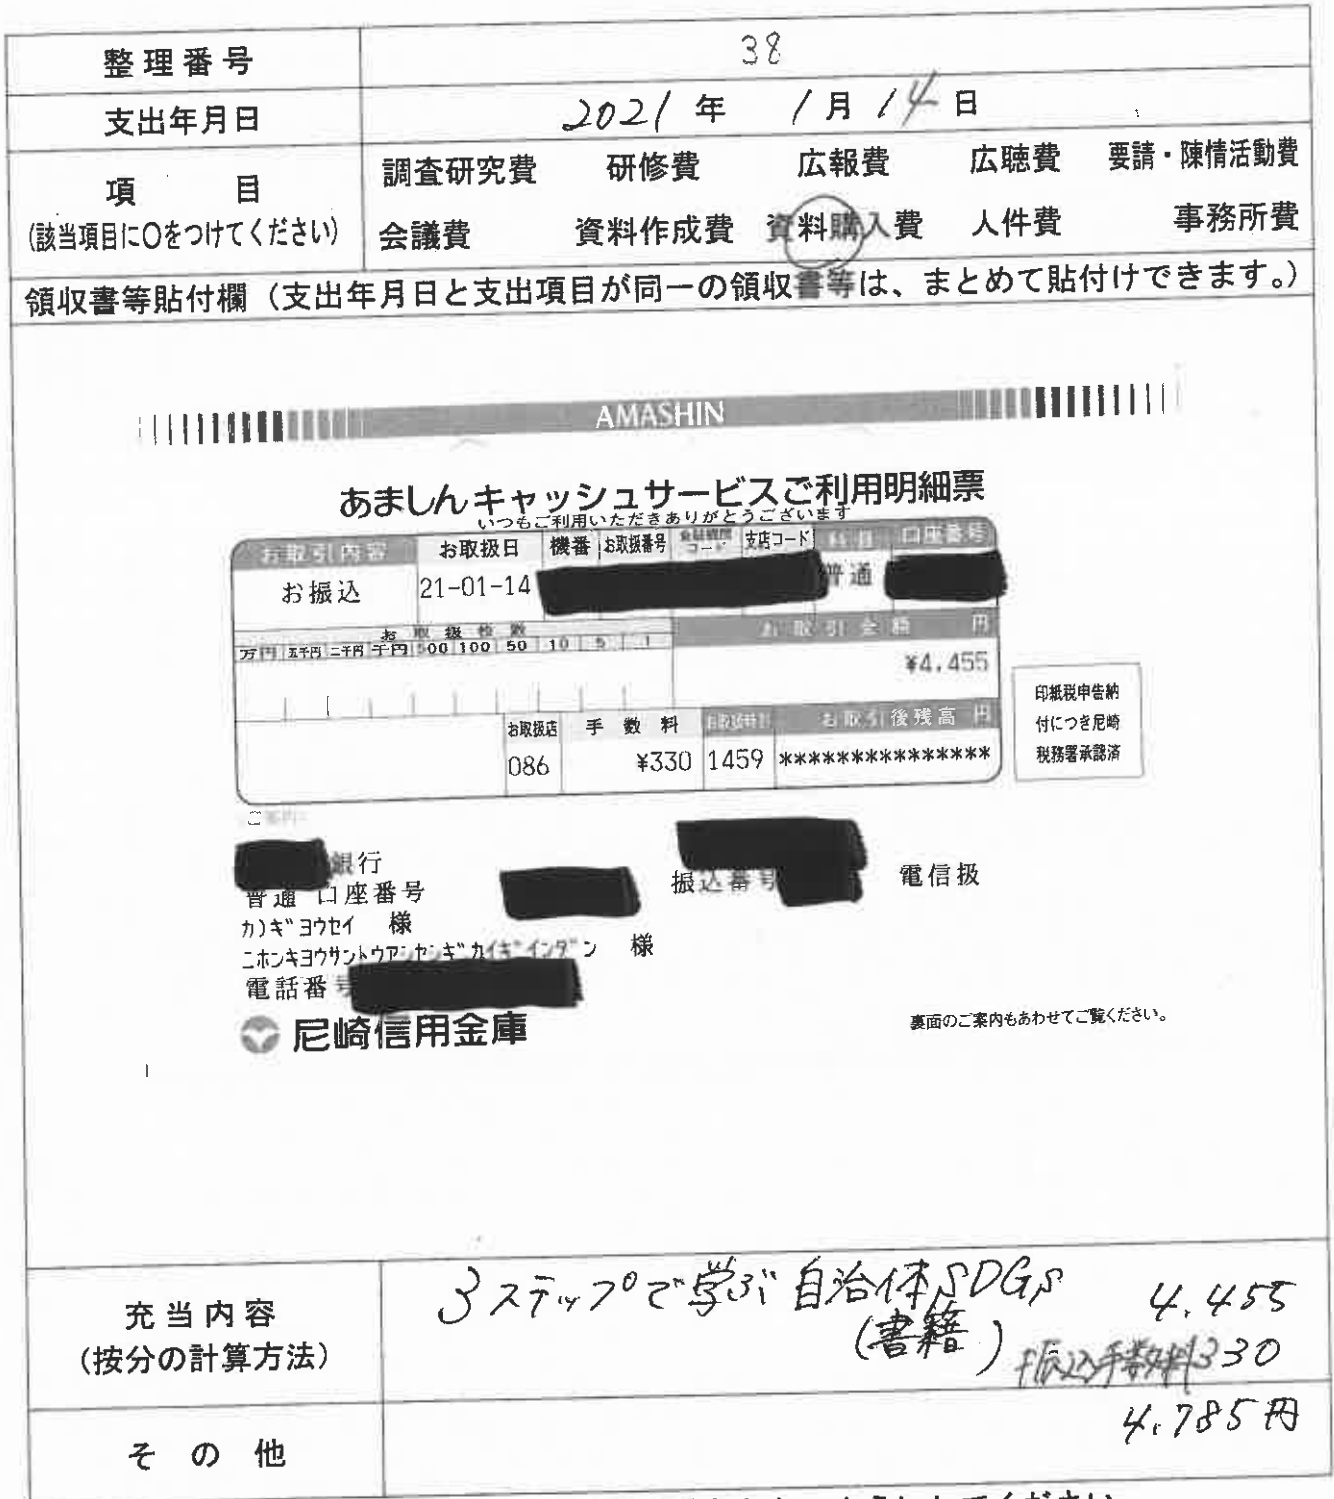 整理番号 38
支出年月日 2021 年 1 月 14 日
項 目
(該当項目に〇をつけてください)
調査研究費 研修費 広報費 広聴費 要請・陳情活動費
会議費 資料作成費 資料購入費 人件費 事務所費
領収書等貼付欄（支出年月日と支出項目が同一の領収書等は、まとめて貼付けできます。）
AMASHIN
あましんキャッシュサービスご利用明細票
いつもご利用いただきありがとうございます
お取引内容 お取扱日 機番 お取扱番号 金融機関コード 支店コード 科目 口座番号
お振込 21-01-14 普通
お取扱枚数 お取引金額 円
万円 五千円 二千円 千円 500 100 50 10 5 1
¥4,455
お取扱店 手数料 お取扱時刻 お取引後残高 円
086 ¥330 1459 ***************
印紙税申告納
付につき尼崎
税務署承認済
ご案内
銀行
普通 口座番号 振込番号 電信扱
カ)ギヨウセイ 様
ニホンキヨウサントウアマガサキシギカイギインダン 様
電話番号
尼崎信用金庫
裏面のご案内もあわせてご覧ください。
充当内容
(按分の計算方法)
3ステップで学ぶ自治体SDGs 4,455
(書籍) 振込手数料330
4,785円
その他